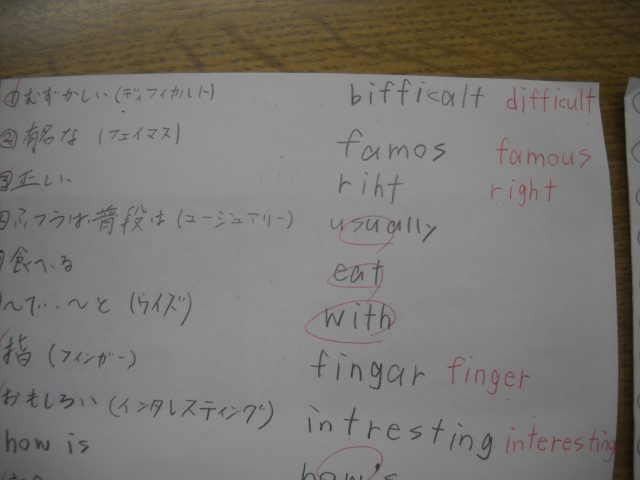 ①むずかしい(ディフィカルト) bifficalt difficult
②有名な (フェイマス) famos famous
正しい riht right
ふつうは・普段は(ユージュアリー) usually
食べる eat
〜で・〜と (ウィズ) with
指 (フィンガー) fingar finger
おもしろい(インタレスティング) intresting interesting
how is how's